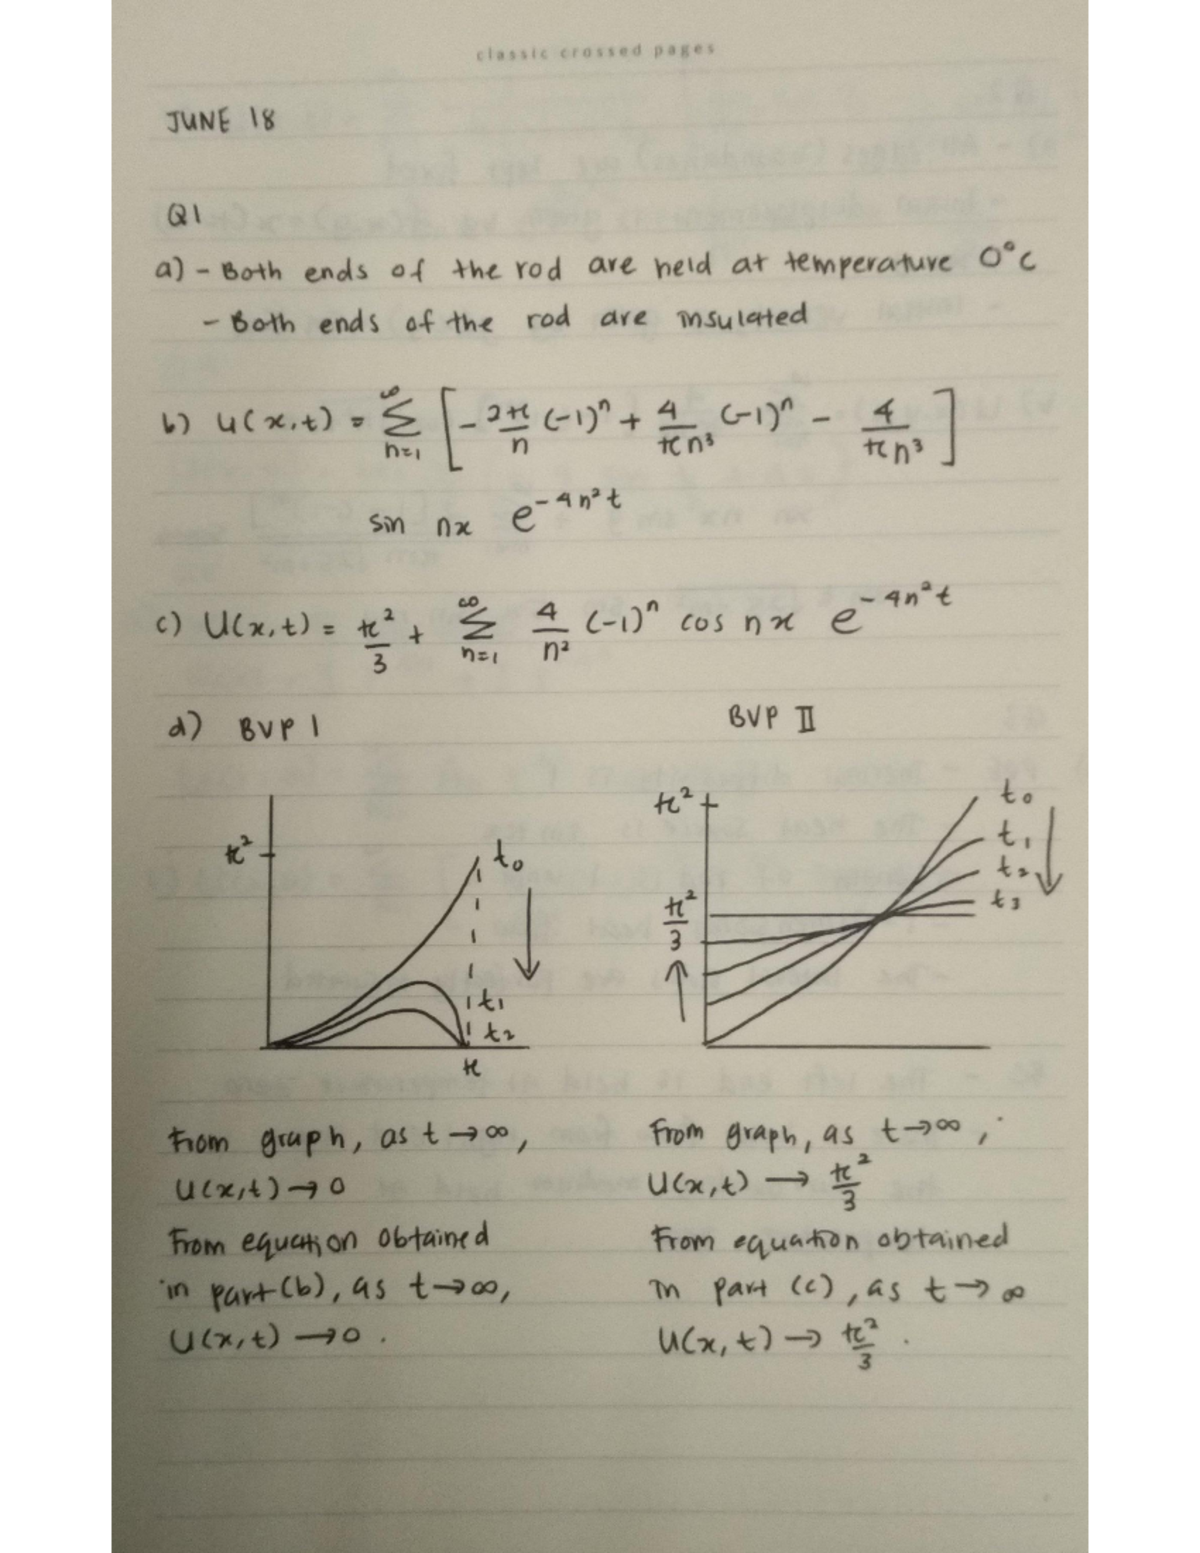 classic crossed pages
JUNE 18
Q1
a) - Both ends of the rod are held at temperature 0°C
- Both ends of the rod are insulated
b) u(x,t) = ∞∑n=1 [ - 2π/n (-1)ⁿ + 4/πn³ (-1)ⁿ - 4/πn³ ]
sin nx e^-4n²t
c) U(x,t) = π²/3 + ∞∑n=1 4/n² (-1)ⁿ cos nx e^-4n²t
d) BVP I BVP II
π² t₀
t₁
t₂
π
π² t₀
t₁
t₂
π²/3 t₃
From graph, as t → ∞,
U(x,t) → 0
From equation obtained
in part (b), as t → ∞,
U(x,t) → 0 .
From graph, as t → ∞ ,
U(x,t) → π²/3
From equation obtained
in part (c) , as t → ∞
U(x,t) → π²/3 .